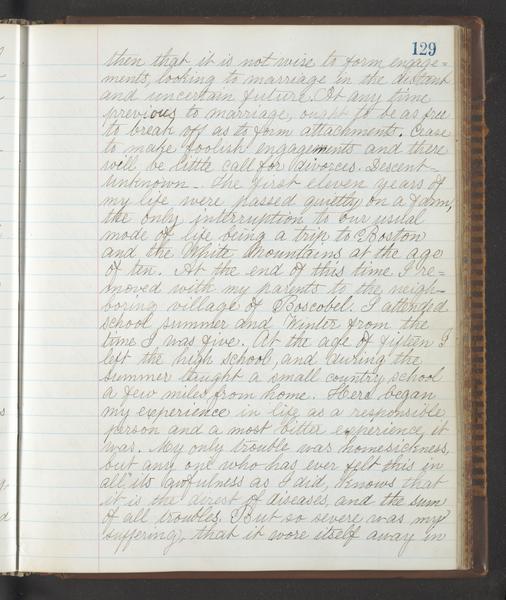 129
then that it is not wise to form engage=
ments, looking to marriage in the distant
and uncertain future. At any time
previous to marriage, ought to be as free
to break off as to form attachments. Cease
to make foolish engagements and there
will be little call for divorces. Descent-
unknown. The first eleven years of
my life were passed quietly on a farm,
the only interruption to our usual
mode of life being a trip to Boston
and the White Mountains at the age
of ten. At the end of this time I re=
moved with my parents to the neigh-
boring village of Boscobel. I attended
school summer and Winter from the
time I was five. At the age of fifteen I
left the high school, and during the
summer taught a small country school
a few miles from home. Here began
my experience in life as a responsible
person and a most bitter experience, it
was. My only trouble was homesickness,
but any one who has ever felt this in
all its awfulness as I did, knows that
it is the direst of diseases, and the sum
of all troubles. But so severe was my
suffering, that it wore itself away in